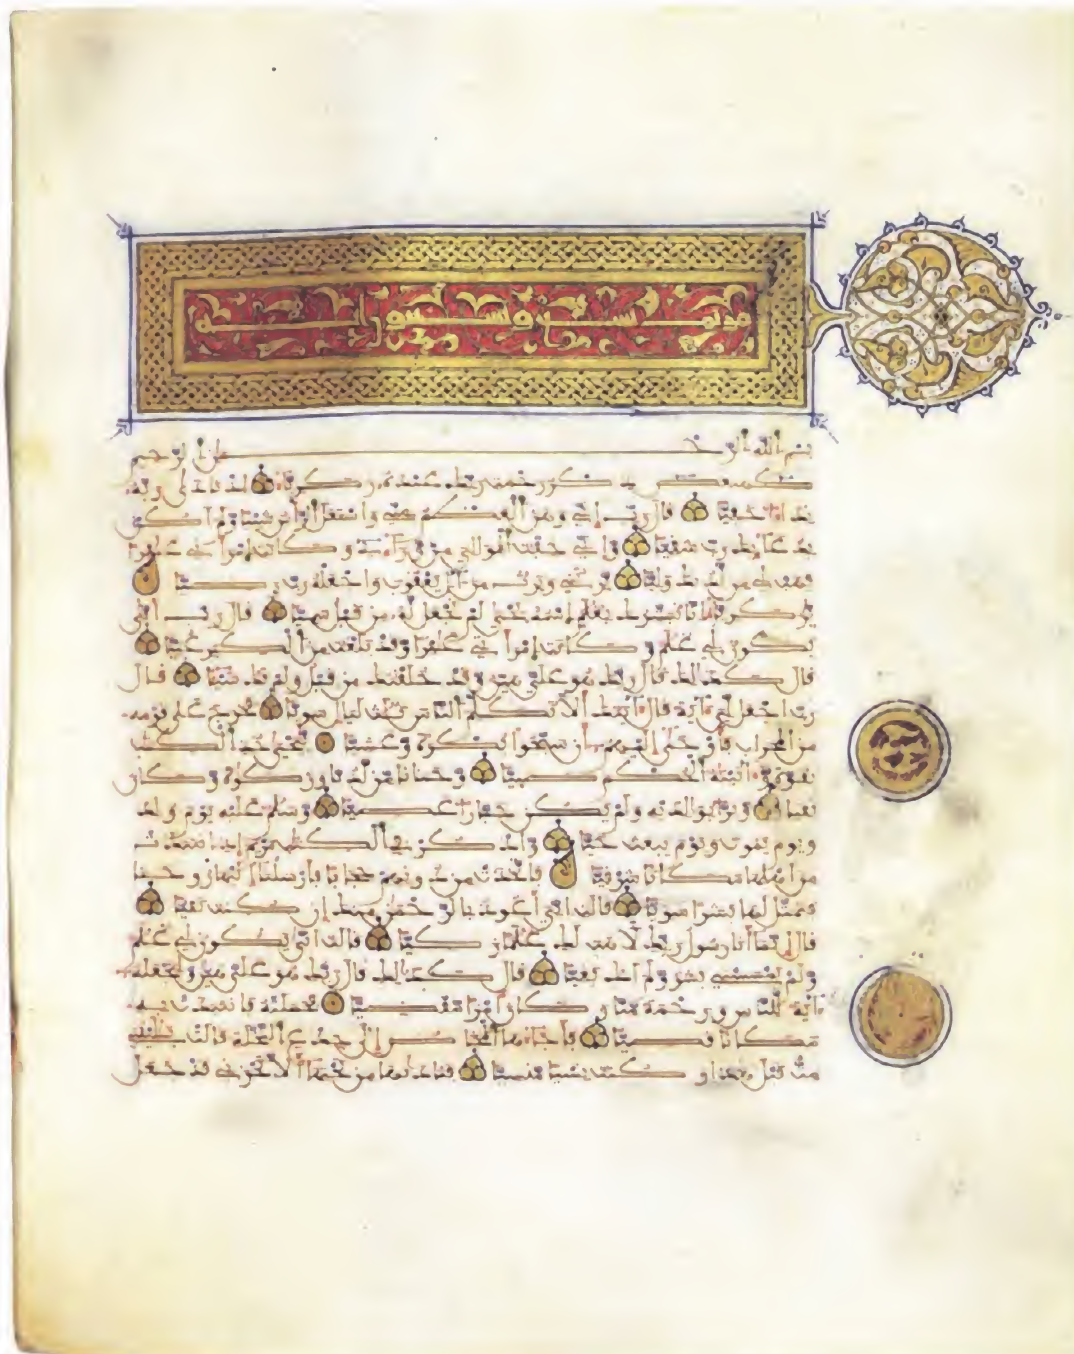 وتسعون ءاية
بسم الله الرحمن الرحيم
كهيعص ذكر رحمت ربك عبده زكرياء اذ نادى ربه
نداء خفيا قال رب اني وهن العظم مني واشتعل الراس شيبا ولم اكن
بدعائك رب شقيا واني خفت الموالي من وراءي وكانت امراتي عاقرا
فهب لي من لدنك وليا يرثني ويرث من ءال يعقوب واجعله رب رضيا
يزكرياء انا نبشرك بغلم اسمه يحيى لم نجعل له من قبل سميا قال رب انى
يكون لي غلم وكانت امراتي عاقرا وقد بلغت من الكبر عتيا
قال كذلك قال ربك هو علي هين وقد خلقتك من قبل ولم تك شيئا قال
رب اجعل لي ءاية قال ءايتك الا تكلم الناس ثلث ليال سويا فخرج على قومه
من المحراب فاوحى اليهم ان سبحوا بكرة وعشيا ييحيى خذ الكتب
بقوة وءاتينه الحكم صبيا وحنانا من لدنا وزكوة وكان
تقيا وبرا بولديه ولم يكن جبارا عصيا وسلم عليه يوم ولد
ويوم يموت ويوم يبعث حيا واذكر في الكتب مريم اذ انتبذت
من اهلها مكانا شرقيا فاتخذت من دونهم حجابا فارسلنا اليها روحنا
فتمثل لها بشرا سويا قالت اني اعوذ بالرحمن منك ان كنت تقيا
قال انما انا رسول ربك لاهب لك غلما زكيا قالت انى يكون لي غلم
ولم يمسسني بشر ولم اك بغيا قال كذلك قال ربك هو علي هين ولنجعله
ءاية للناس ورحمة منا وكان امرا مقضيا فحملته فانتبذت به
مكانا قصيا فاجاءها المخاض الى جذع النخلة قالت يليتني
مت قبل هذا وكنت نسيا منسيا فناديها من تحتها الا تحزني قد جعل